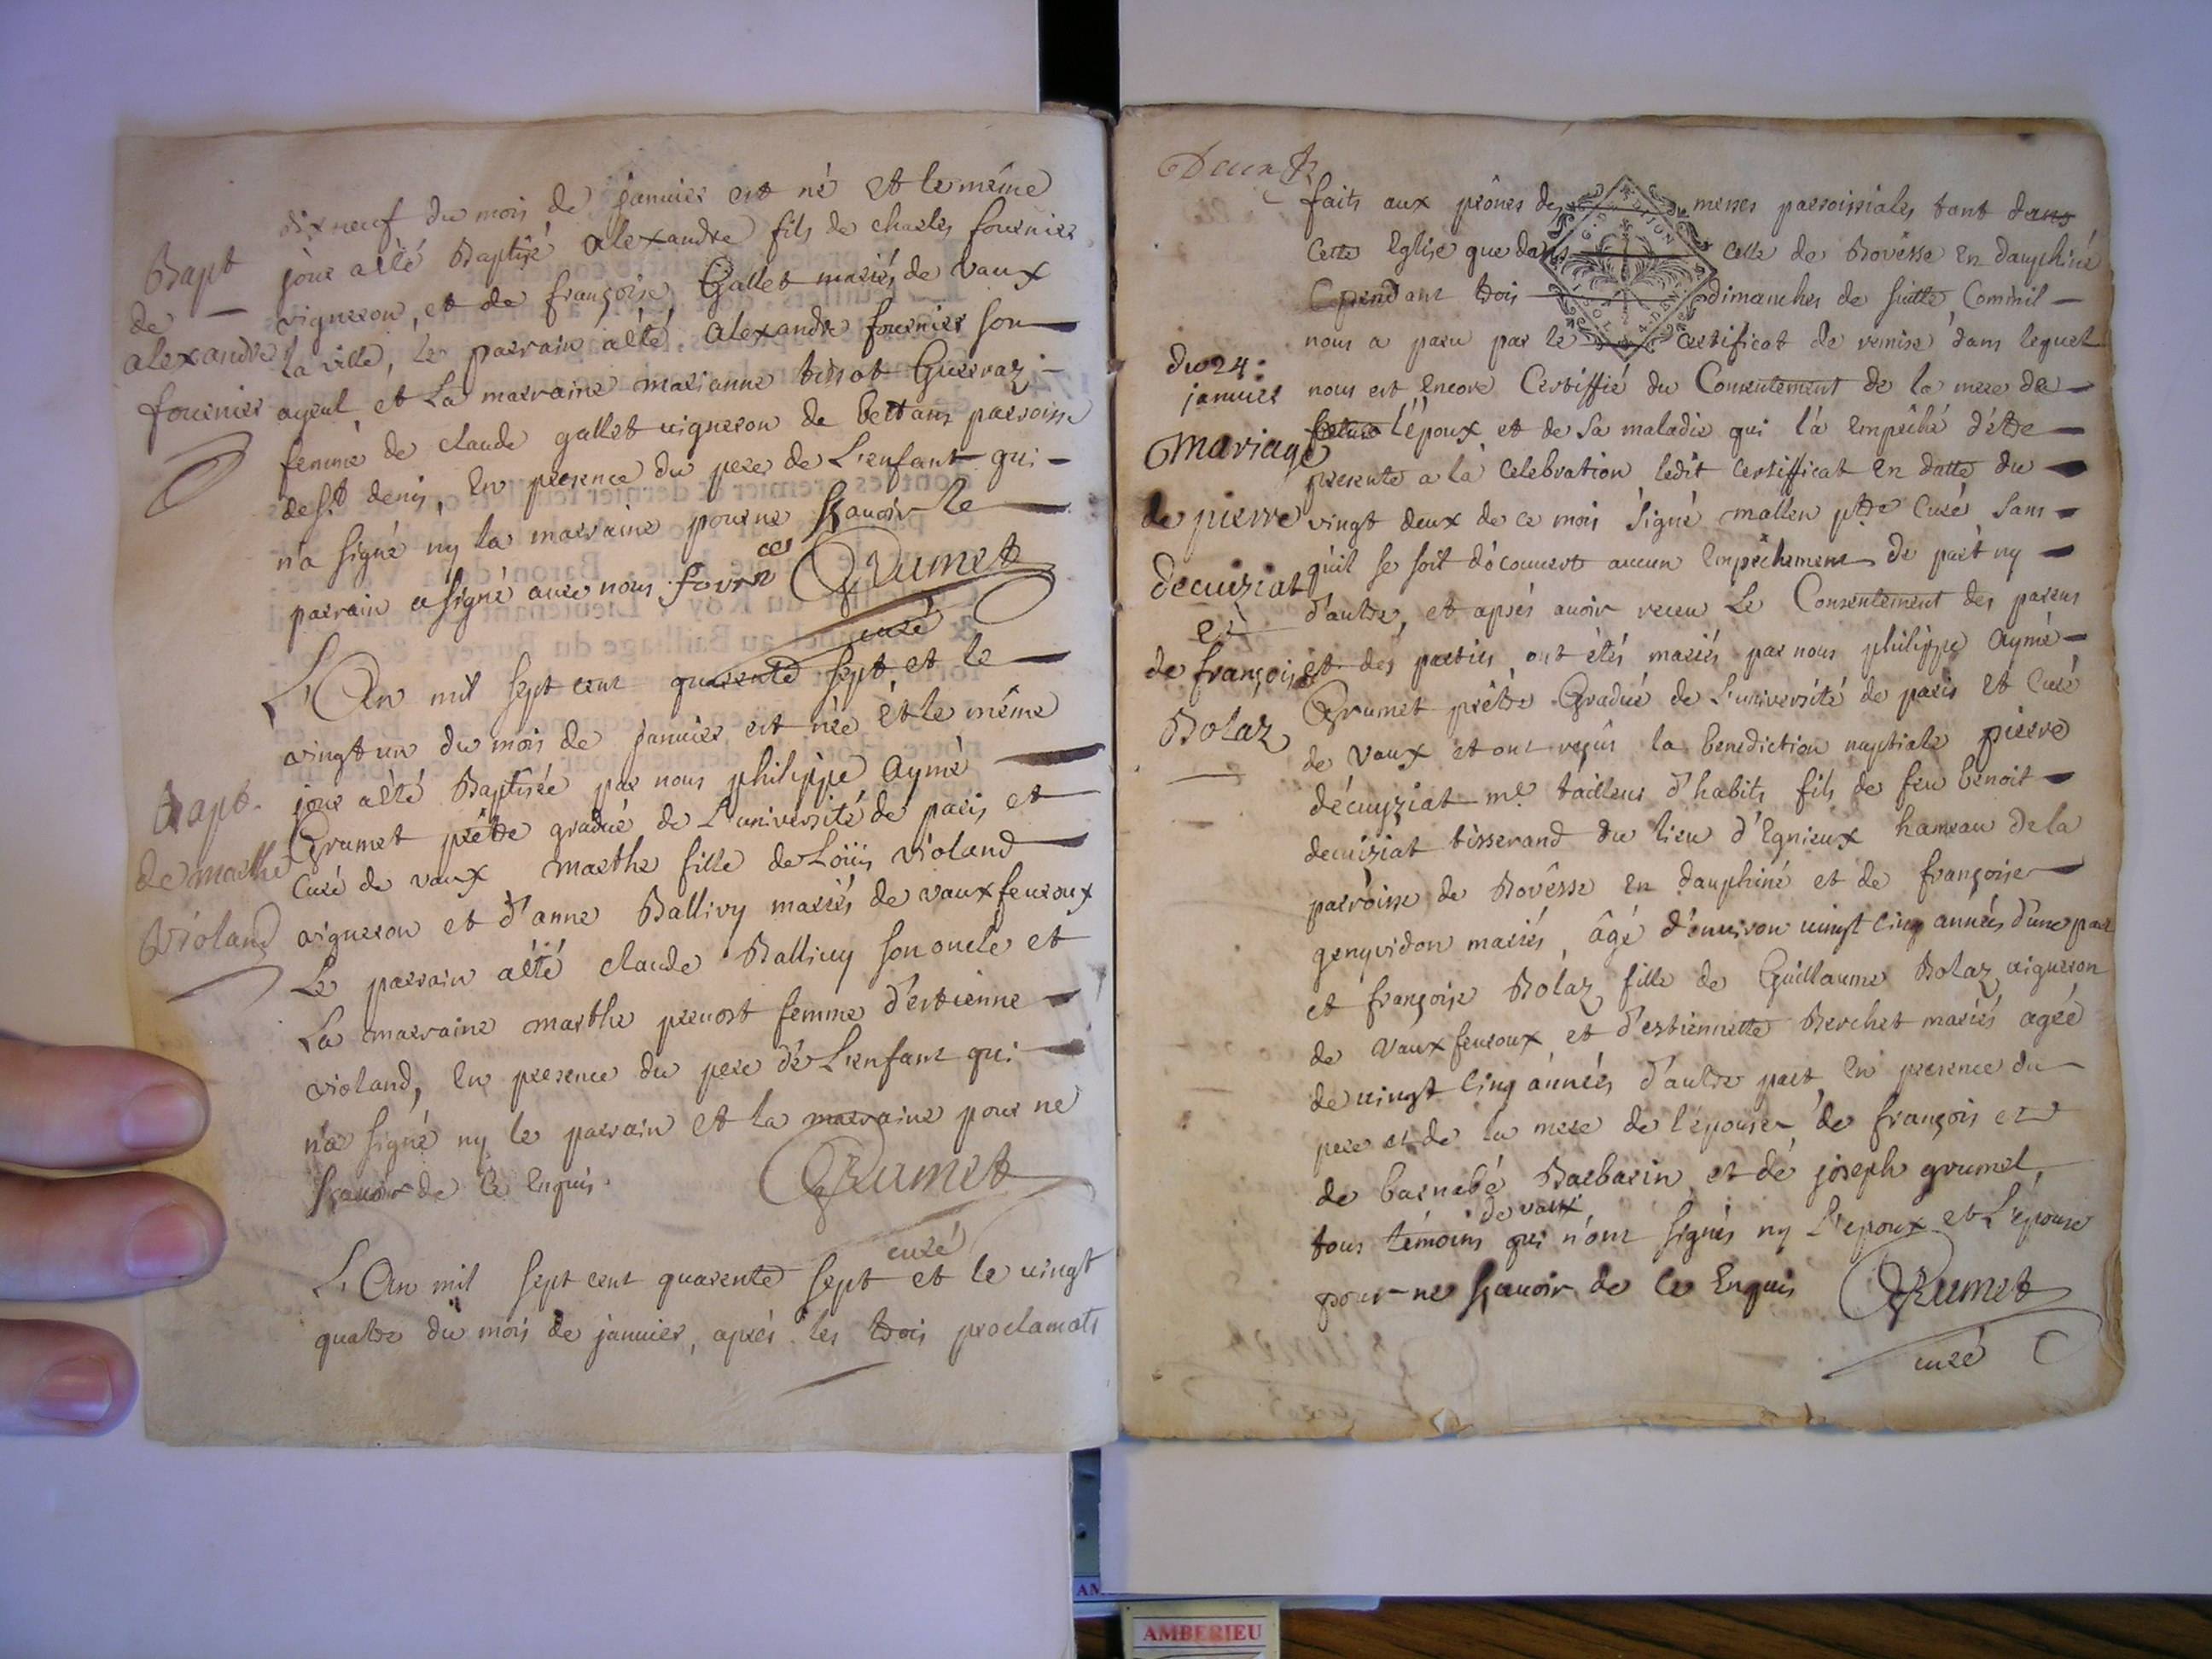 dix neuf du mois de janvier est né et le même
Bapt
de
alexandre
fournier
jour a eté Baptisé alexandre fils de charles fournier
vigneron, et de françoise Gallet mariés de vaux
la ville, le parrain a eté alexandre fournier son
ayeul et La marraine marianne Guerraz
femme de claude gallet vigneron de bettans parroisse
de st denis, en presence du pere de L'enfant qui
n'a signé ny la marraine pour ne sçavoir le
parrain a signé avec nous Grumet
curé
L'An mil sept cent quarente sept, et le
vingt un du mois de janvier est née et le même
Bapt.
de marthe
violand
jour a eté Baptisée par nous philippe Aymé
Grumet prêtre gradué de L'université de paris et
Curé de vaux marthe fille de Loüis violand
vigneron et d'anne Ballivy mariés de vaux fevroux
Le parrain a eté claude Ballivy son oncle et
La marraine marthe prevost femme d'estienne
violand, en presence du pere de L'enfant qui
n'a signé ny le parrain et la marraine pour ne
sçavoir de ce enquis
Grumet
curé
L'An mil sept cent quarente sept et le vingt
quatre du mois de janvier, aprés les trois proclamats
Deux
faits aux prônes des messes parroissiales tant dans
cette Eglise que dans celle de Bovêsse en dauphiné
Cependant trois dimanches de suitte, Comm'il
nous a paru par le Certificat de remise dans lequel
du 24
janvier
Mariage
de pierre
decuiziat
et
de françoise
Bolaz
nous est encore Certiffié du Consentement de la mere de
L'époux et de sa maladie qui l'a empêché d'être
presente a la celebration, ledit Certifficat en datte du
vingt deux de ce mois signé mallen ptre Curé, sans
qu'il se soit découvert aucun Empêchement de part ny
d'autre, et aprés avoir receu Le Consentement des parens
et des parties ont étés mariés par nous philippe Aymé
Grumet prêtre Gradué de L'université de paris et Curé
de Vaux et ont reçus la benediction nuptiale pierre
décuyziat me. tailleur d'habits fils de feu benoit
decuiziat tisserand du lieu d'Egnieux hameau de la
parroisse de Bovêsse en dauphiné et de françoise
genyvidon mariés, âgé d'environ vingt cinq années d'une part
et françoise Bolaz fille de Guillaume Bolaz vigneron
de Vaux fevroux et d'estiennette Berchet mariés agée
de vingt cinq années d'autre part, en presence du
pere et de la mere de l'épouse, de françois et
de barnabé Barbarin, et de joseph grumet,
de vaux
tous témoins qui n'ont signés ny L'epoux et L'épouse
pour ne sçavoir de ce Enquis Grumet
curé
AMBERIEU